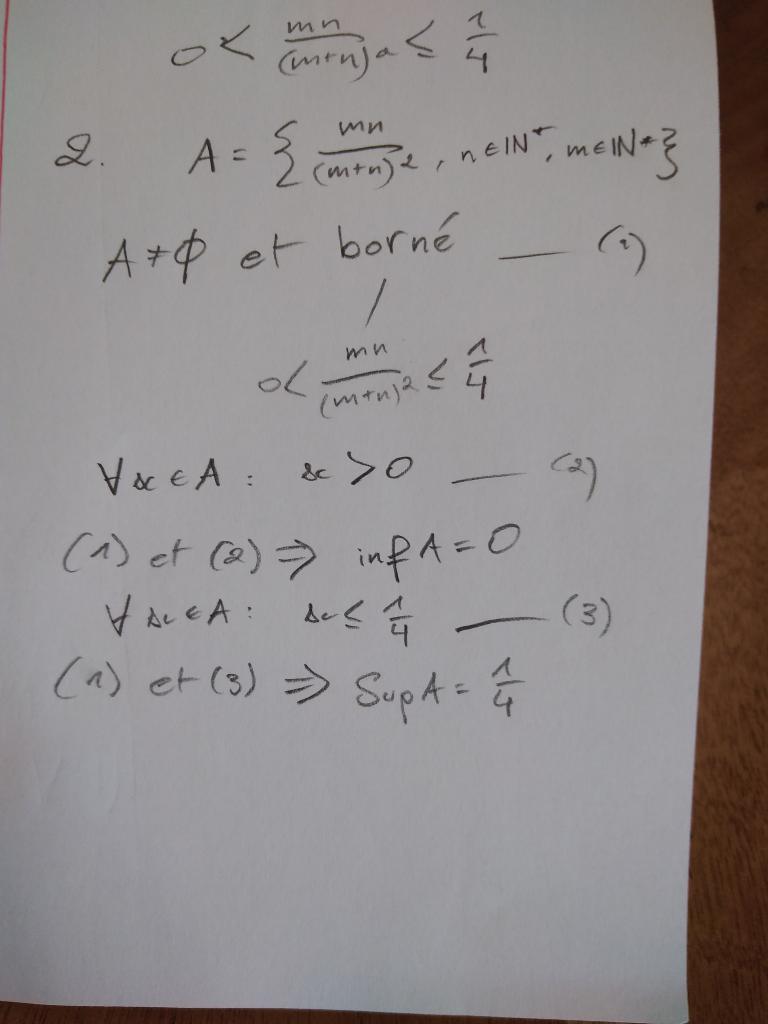 0 < mn/(m+n)² ≤ 1/4
2. A = { mn/(m+n)², n∈ℕ*, m∈ℕ* }
A ≠ ϕ et borné — (1)
/
0 < mn/(m+n)² ≤ 1/4
∀x∈A : x > 0 — (2)
(1) et (2) ⇒ inf A = 0
∀x∈A : x ≤ 1/4 — (3)
(1) et (3) ⇒ Sup A = 1/4